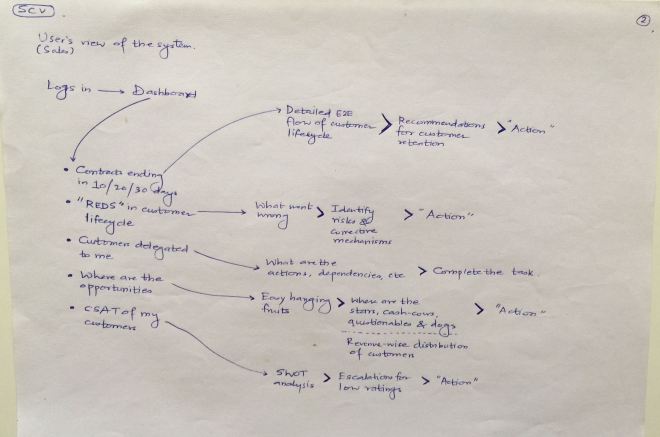 SCV
2
User's view of the system.
(Sales)
Logs in → Dashboard
Detailed E2E
flow of customer
lifecycle
> Recommendations
for customer
retention
> "Action"
• Contracts ending
in 10/20/30 days
• "REDS" in customer
lifecycle
What went
wrong
> Identify
risks &
corrective
mechanisms
> "Action"
• Customers delegated
to me
What are the
actions, dependencies, etc > Complete the task.
• Where are the
opportunities
Easy hanging
fruits
> Where are the
stars, cash-cows,
questionables & dogs
Revenue-wise distribution
of customers
> "Action"
• CSAT of my
customers
SWOT
analysis
> Escalation for
low ratings
> "Action"